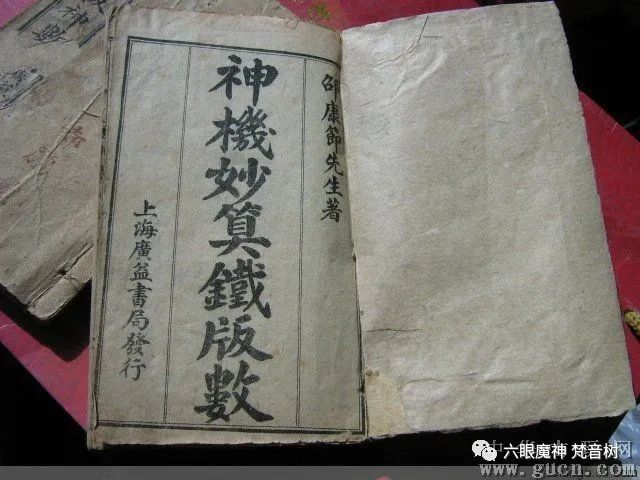 邵康節先生著
神機妙算鐵版數
上海廣益書局發行
六眼魔神 梵音树
www.gucn.com